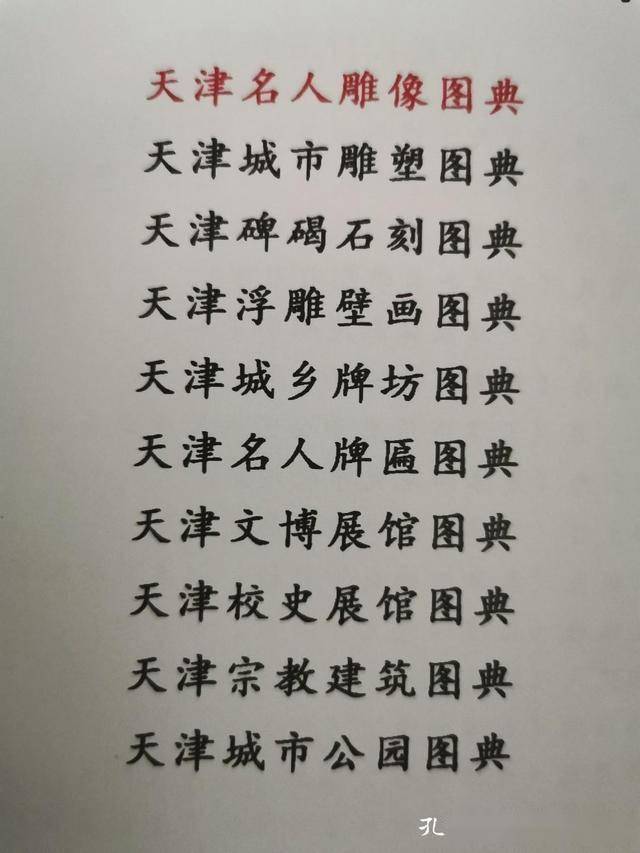 天津名人雕像图典
天津城市雕塑图典
天津碑碣石刻图典
天津浮雕壁画图典
天津城乡牌坊图典
天津名人牌匾图典
天津文博展馆图典
天津校史展馆图典
天津宗教建筑图典
天津城市公园图典
孔